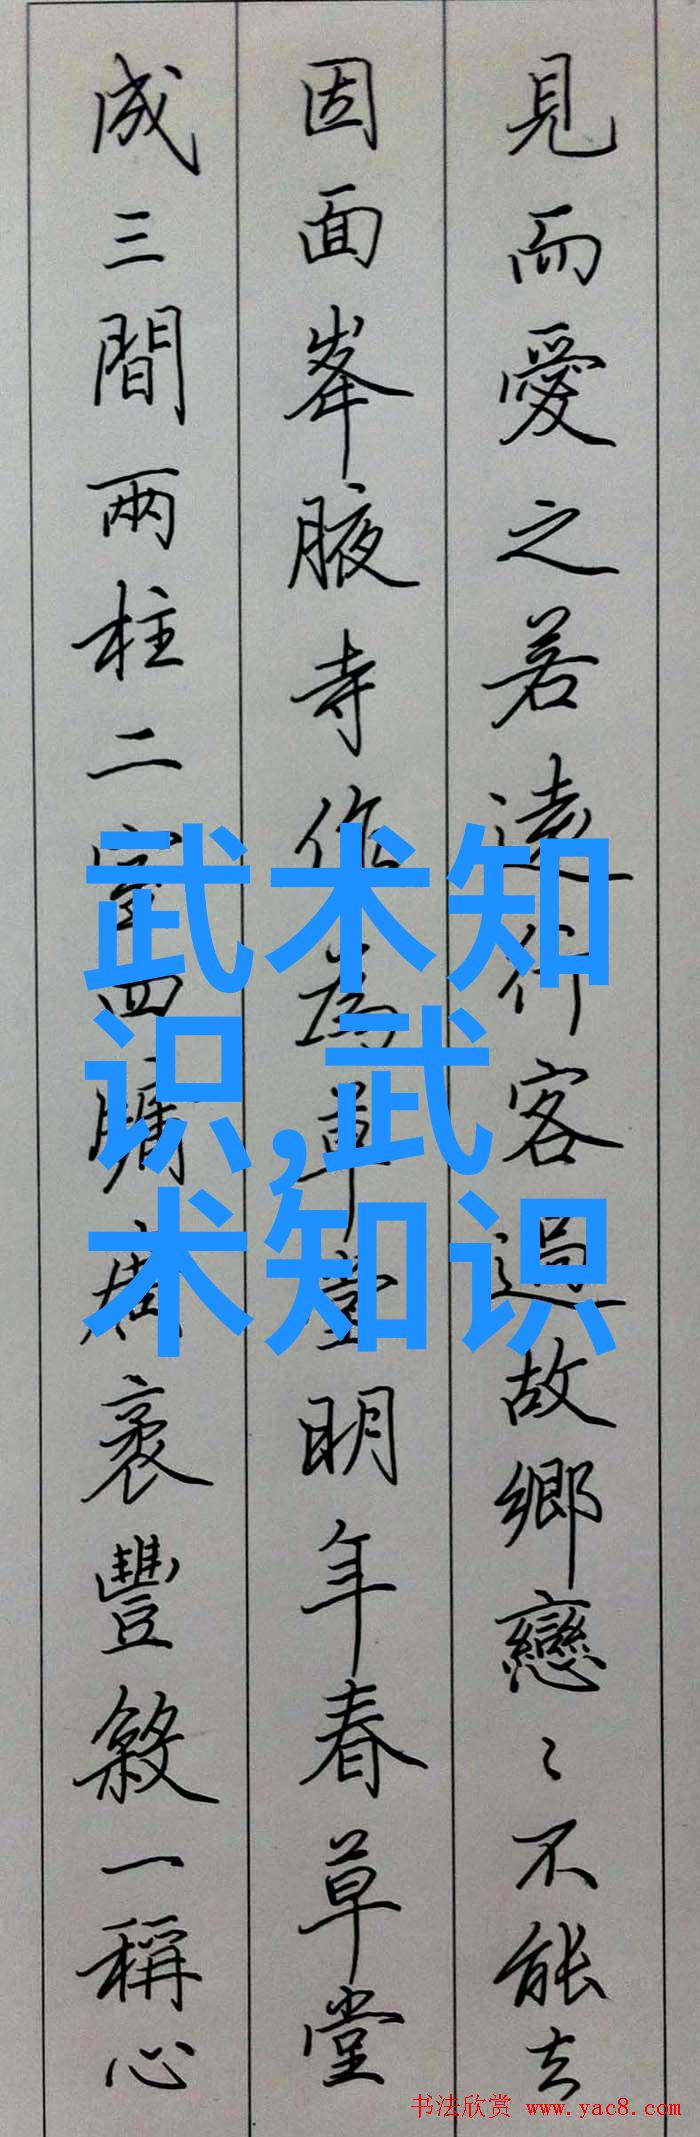 見而愛之若遠行客過故鄉戀〻不能去
因面峯腋寺作為草堂明年春草堂
成三間兩柱二室四牖廣袤豐殺一稱心
武术知
识,武
术知识
书法欣赏 www.yac8.com